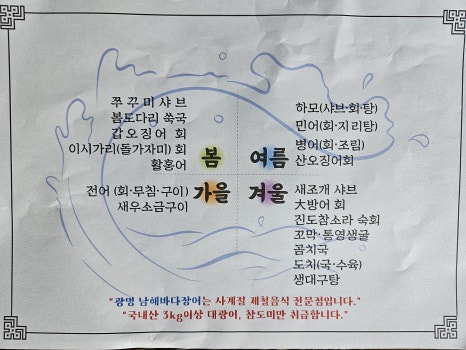 쭈꾸미샤브
볼도다리 쑥국
갑오징어 회
이시가리(돌가자미) 회
활홍어
봄
하모(샤브·회·탕)
민어(회·지리탕)
병어(회·조림)
산오징어회
여름
전어 (회·무침·구이)
새우소금구이
가을
겨울
새조개 샤브
大방어 회
진도참소라 숙회
꼬막·통영생굴
곰치국
도치(국·수육)
생대구탕
"광명 남해바다장어는 사계절 제철음식 전문점입니다."
"국내산 3kg이상 대광어, 참도미만 취급합니다."